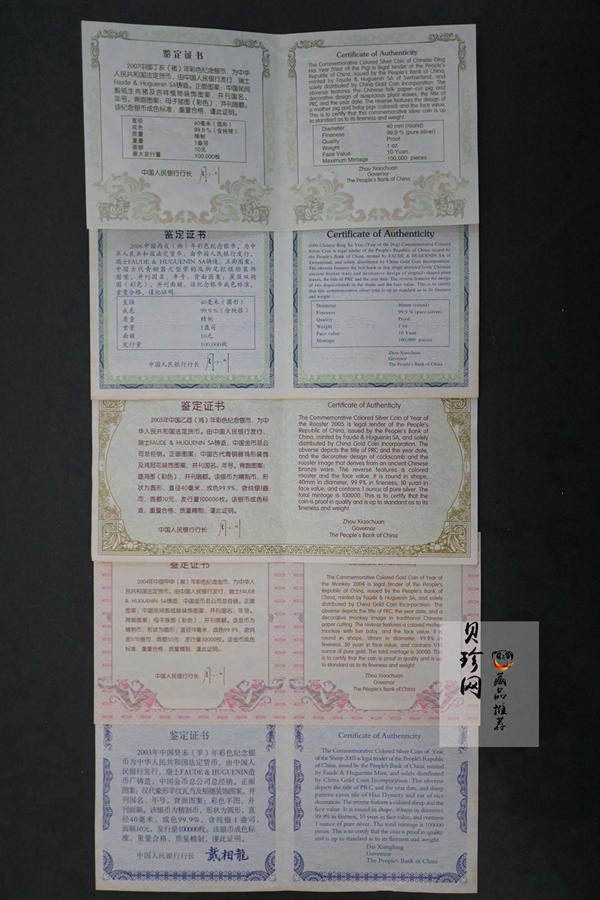 鉴定证书
2007中国丁亥（猪）年彩色纪念银币，为中华
人民共和国法定货币，由中国人民银行发行，瑞士
Faude & Huguenin SA铸造。正面图案：中国民间
剪纸生肖猪及吉祥植物装饰图案，并刊国名、
年号。背面图案：母子猪图（彩色），并刊面额。
该纪念银币成色标准，重量合格，谨此证明。
直径 40毫米（圆形）
成色 99.9%（含纯银）
质量 精制
重量 1盎司
面额 10元
最大发行量 100,000枚
中国人民银行行长
Certificate of Authenticity
The Commemorative Colored Silver Coin of Chinese Ding
Hai Year (Year of the Pig) is legal tender of the People's
Republic of China, issued by the People's Bank of China,
minted by Faude & Huguenin SA of Switzerland, and
solely distributed by China Gold Coin Incorporation. The
obverse features the Chinese folk paper-cut pig and
decorative design of auspicious plant leaves, the title of
PRC and the year date. The reverse features the design of
a mother pig and baby pigs (colored) and the face value.
This is to certify that this commemorative silver coin is up
to standard as to its fineness and weight.
Diameter 40 mm (round)
Fineness 99.9 % (pure silver)
Quality Proof
Weight 1 oz
Face Value 10 Yuan
Maximum Mintage 100,000 pieces
Zhou Xiaochuan
Governor
The People's Bank of China
鉴定证书
2006中国丙戌（狗）年彩色纪念银币，为中
华人民共和国法定货币，由中国人民银行发行，
瑞士FAUDE & HUGUENIN SA铸造。正面图案：
并刊国名、年号。背面图案：
（彩色），并刊面额。该纪念银币成色标准，
重量合格，谨此证明。
直径 40毫米（圆形）
成色 99.9%（含纯银）
质量 精制
重量 1盎司
面额 10元
发行量 100,000枚
中国人民银行行长
Certificate of Authenticity
2006 Chinese Bing Xu Year (Year of the Dog) Commemorative Colored
Silver Coin is legal tender of the People's Republic of China, issued by
the People's Bank of China, minted by FAUDE & HUGUENIN SA of
Switzerland, and solely distributed by China Gold Coin Incorporation.
Diameter 40mm (round)
Fineness 99.9 % (pure silver)
Quality Proof
Weight 1 oz
Face value 10 Yuan
Mintage 100,000 pieces
Zhou Xiaochuan
Governor
The People's Bank of China
鉴定证书
2005年中国乙酉（鸡）年彩色纪念银币，为中
华人民共和国法定货币。由中国人民银行发行，
瑞士FAUDE & HUGUENIN SA铸造，中国金币总公
司总经销。正面图案：中国古代青铜器鸡形装饰
及鸡冠花装饰图案，并刊国名、年号。背面图案：
雄鸡图（彩色），并刊面额。该银币为精制币，形
状为圆形，直径40毫米，成色99.9%，含纯银1盎
司，面额10元，发行量100000枚。该银币成色标
准，重量合格，质量精制，谨此证明。
中国人民银行行长
Certificate of Authenticity
The Commemorative Colored Silver Coin of Year of
the Rooster 2005 is legal tender of the People's
Republic of China, issued by the People's Bank of
China, minted by Faude & Huguenin SA, and solely
distributed by China Gold Coin Incorporation. The
obverse depicts the title of PRC and the year date,
and the decorative design of cockscomb and the
rooster image that derives from an ancient Chinese
bronze ware. The reverse features a colored
rooster and the face value. It is round in shape,
40mm in diameter, 99.9% in fineness, 10 yuan in
face value, and contains 1 ounce of pure silver. The
total mintage is 100000. This is to certify that the
coin is proof in quality and is up to standard as to its
fineness and weight.
Zhou Xiaochuan
Governor
The People's Bank of China
鉴定证书
2004年中国甲申（猴）年彩色纪念金币，为中华人
民共和国法定货币。由中国人民银行发行，瑞士FAUDE
& HUGUENIN SA铸造，中国金币总公司总经销。正面
图案：中国民间剪纸猴装饰图案，并刊国名、年号。
背面图案：母子猴图（彩色），并刊面额。该金币为精
制币，形状为圆形，直径18毫米，成色99.9%，含纯金
1/10盎司，面额50元，发行量30000枚。该金币成色标
准，重量合格，质量精制，谨此证明。
中国人民银行行长
Certificate of Authenticity
The Commemorative Colored Gold Coin of Year of
the Monkey 2004 is legal tender of the People's
Republic of China, issued by the People's Bank of
China, minted by Faude & Huguenin SA, and solely
distributed by China Gold Coin Incorporation. The
obverse depicts the title of PRC, the year date, and a
decorative monkey image in traditional Chinese
paper cutting. The reverse features a colored mother
monkey with her baby, and the face value. It is
round in shape, 18mm in diameter, 99.9% in
fineness, 50 yuan in face value, and contains 1/10
ounce of pure gold. The total mintage is 30000. This
is to certify that the coin is proof in quality and is up
to standard as to its fineness and weight.
Zhou Xiaochuan
Governor
The People's Bank of China
贝珍网
藏品推荐
鉴定证书
2003年中国癸未（羊）年彩色纪念银
币为中华人民共和国法定货币，由中国人
民银行发行，瑞士FAUDE & HUGUENIN造
币厂铸造，中国金币总公司总经销。正面
图案：汉代象形羊纹瓦当及稻穗装饰图案，
并刊国名、年号，背面图案：彩色羊图，并
刊面额。该银币为精制币，形状为圆形，直
径40毫米，成色99.9%，含纯银1盎司，
面额10元，发行量100000枚。该银币成色标
准，重量合格，质量精制，谨此证明。
中国人民银行行长 戴相龙
Certificate of Authenticity
The Commemorative Colored Silver Coin of Year
of the Sheep 2003 is legal tender of the People's Republic
of China, issued by the People's Bank of China, minted
by Faude & Huguenin Mint, and solely distributed
by China Gold Coin Incorporation. The obverse
depicts the title of the PRC and the year date, and sheep
pattern eaves tile of Han Dynasty and ear of rice
decoration. The reverse features a colored sheep and the
face value. It is round in shape, 40mm in diameters
99.9% in fineness, 10 yuan as face value, and contains
1 ounce of pure silver. The total mintage is 100000
pieces. This is to certify that the coin is proof in quality
and is up to standard as to its fineness and weight.
Dai Xianglong
Governor
The People's Bank of China